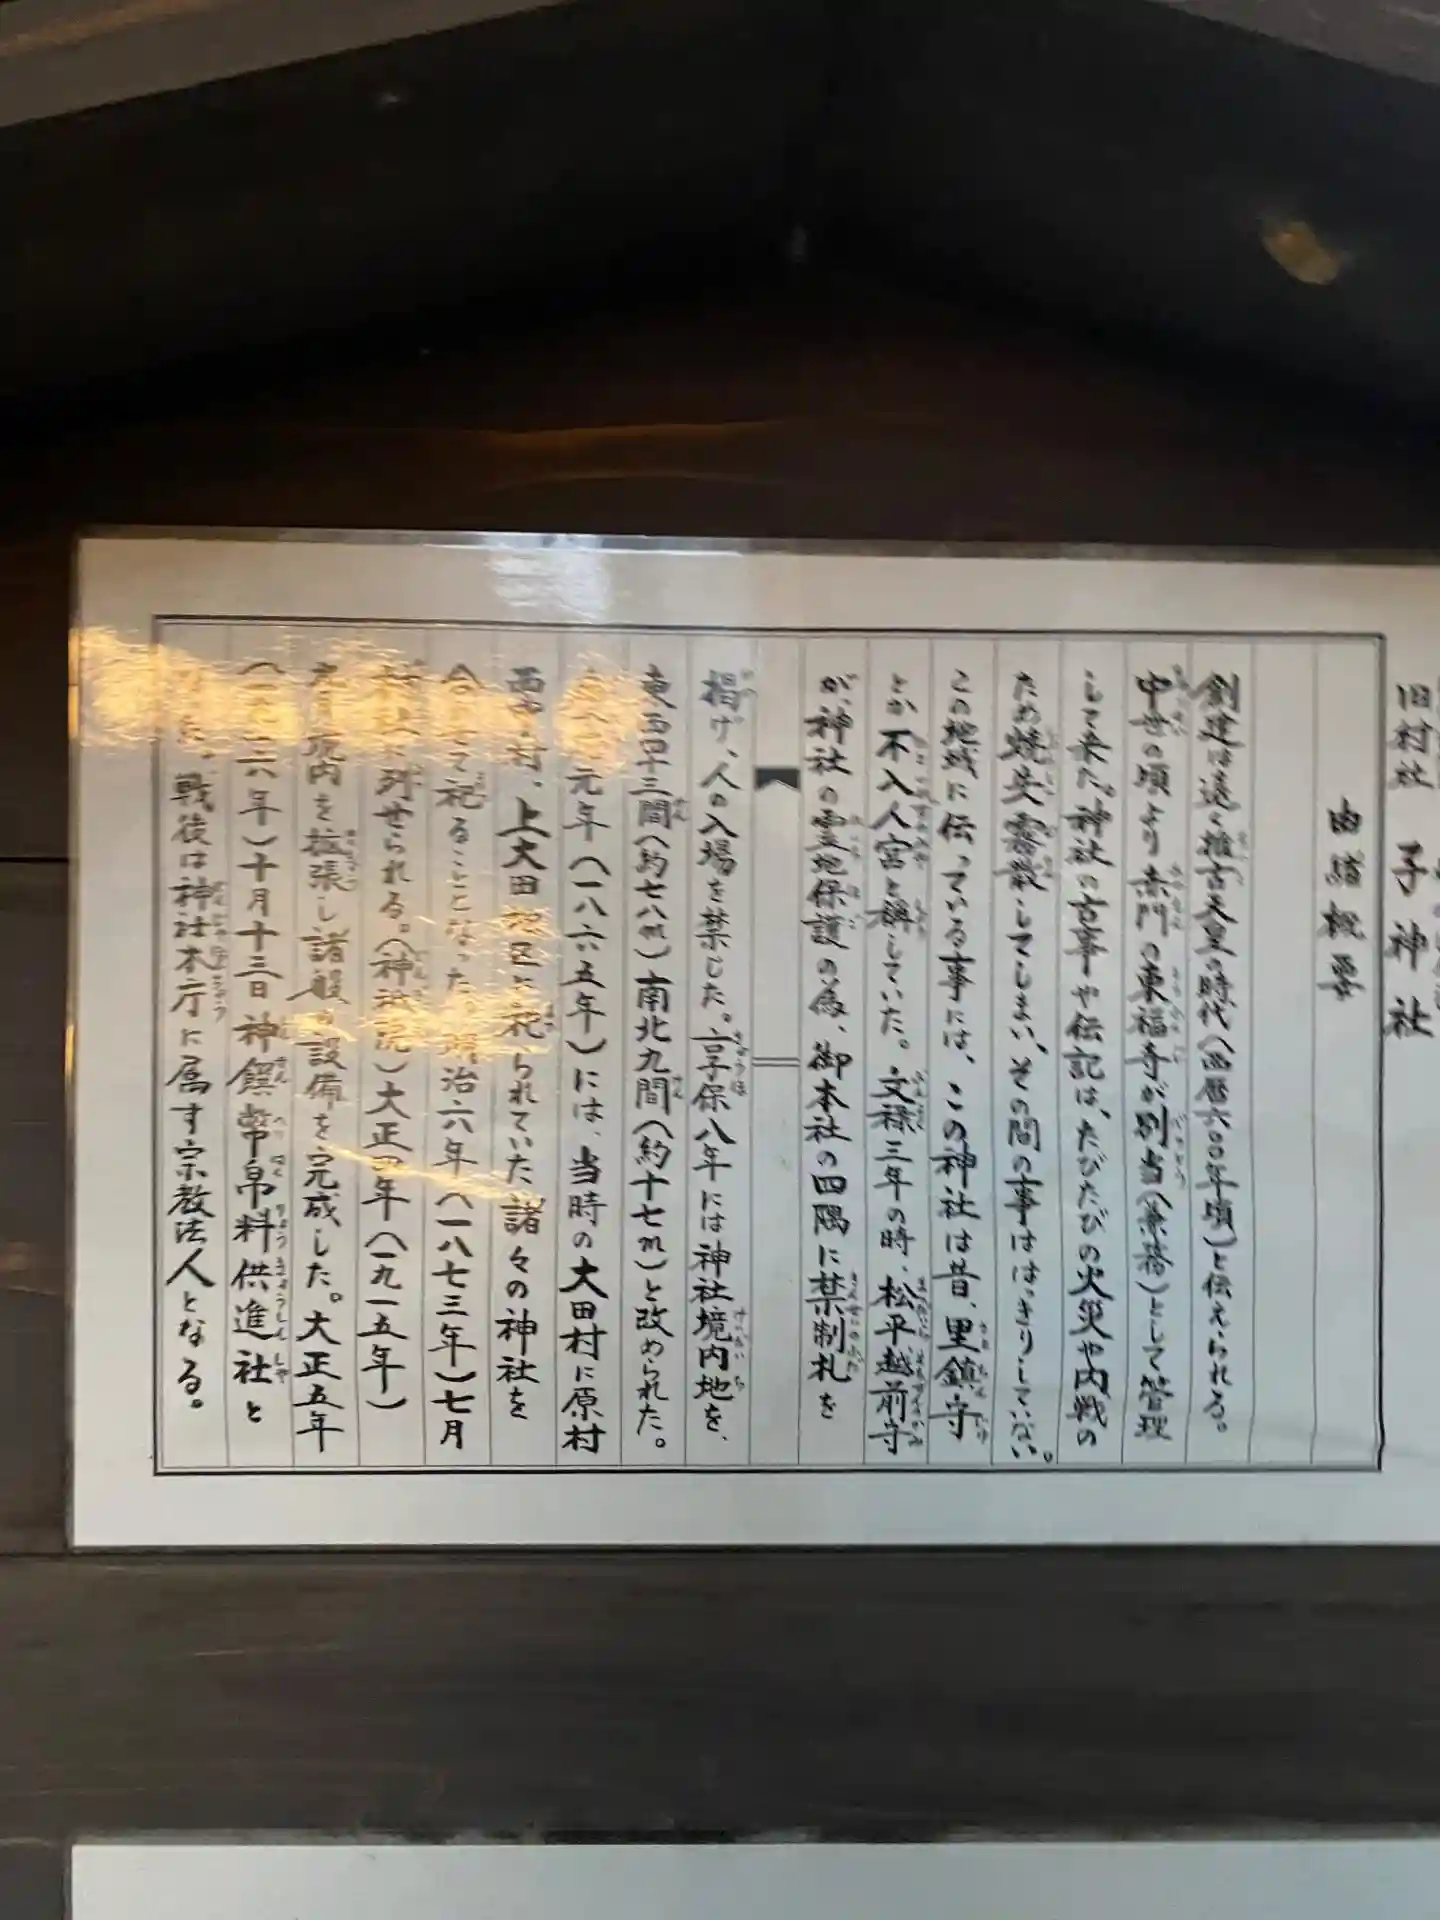 旧村社 子神社
由緒概要
創建は遠く推古天皇の時代（西暦六〇〇年頃）と伝えられる。
中世の頃より赤門の東福寺が別当（兼務）として管理
して来た。神社の古事や伝記は、たびたびの火災や内戦の
ため焼失霧散してしまい、その間の事ははっきりしていない。
この地域に伝っている事には、この神社は昔、里鎮守
とか不入人宮と称していた。文禄三年の時、松平越前守
が、神社の霊地保護の為、御本社の四隅に禁制札を
掲げ、人の入場を禁じた。享保八年には神社境内地を、
東西四十三間（約七八m）南北九間（約十七m）と改められた。
元年（一八六五年）には、当時の大田村に原村
西 村、上大田地区に祀られていた諸々の神社を
合 て祀ることとなった。明治六年（一八七三年）七月
村社に列せられる。（神祇院）大正四年（一九一五年）
月境内を拡張し諸般の設備を完成した。大正五年
（一九一六年）十月十三日神饌幣帛料供進社と
。戦後は神社本庁に属す宗教法人となる。